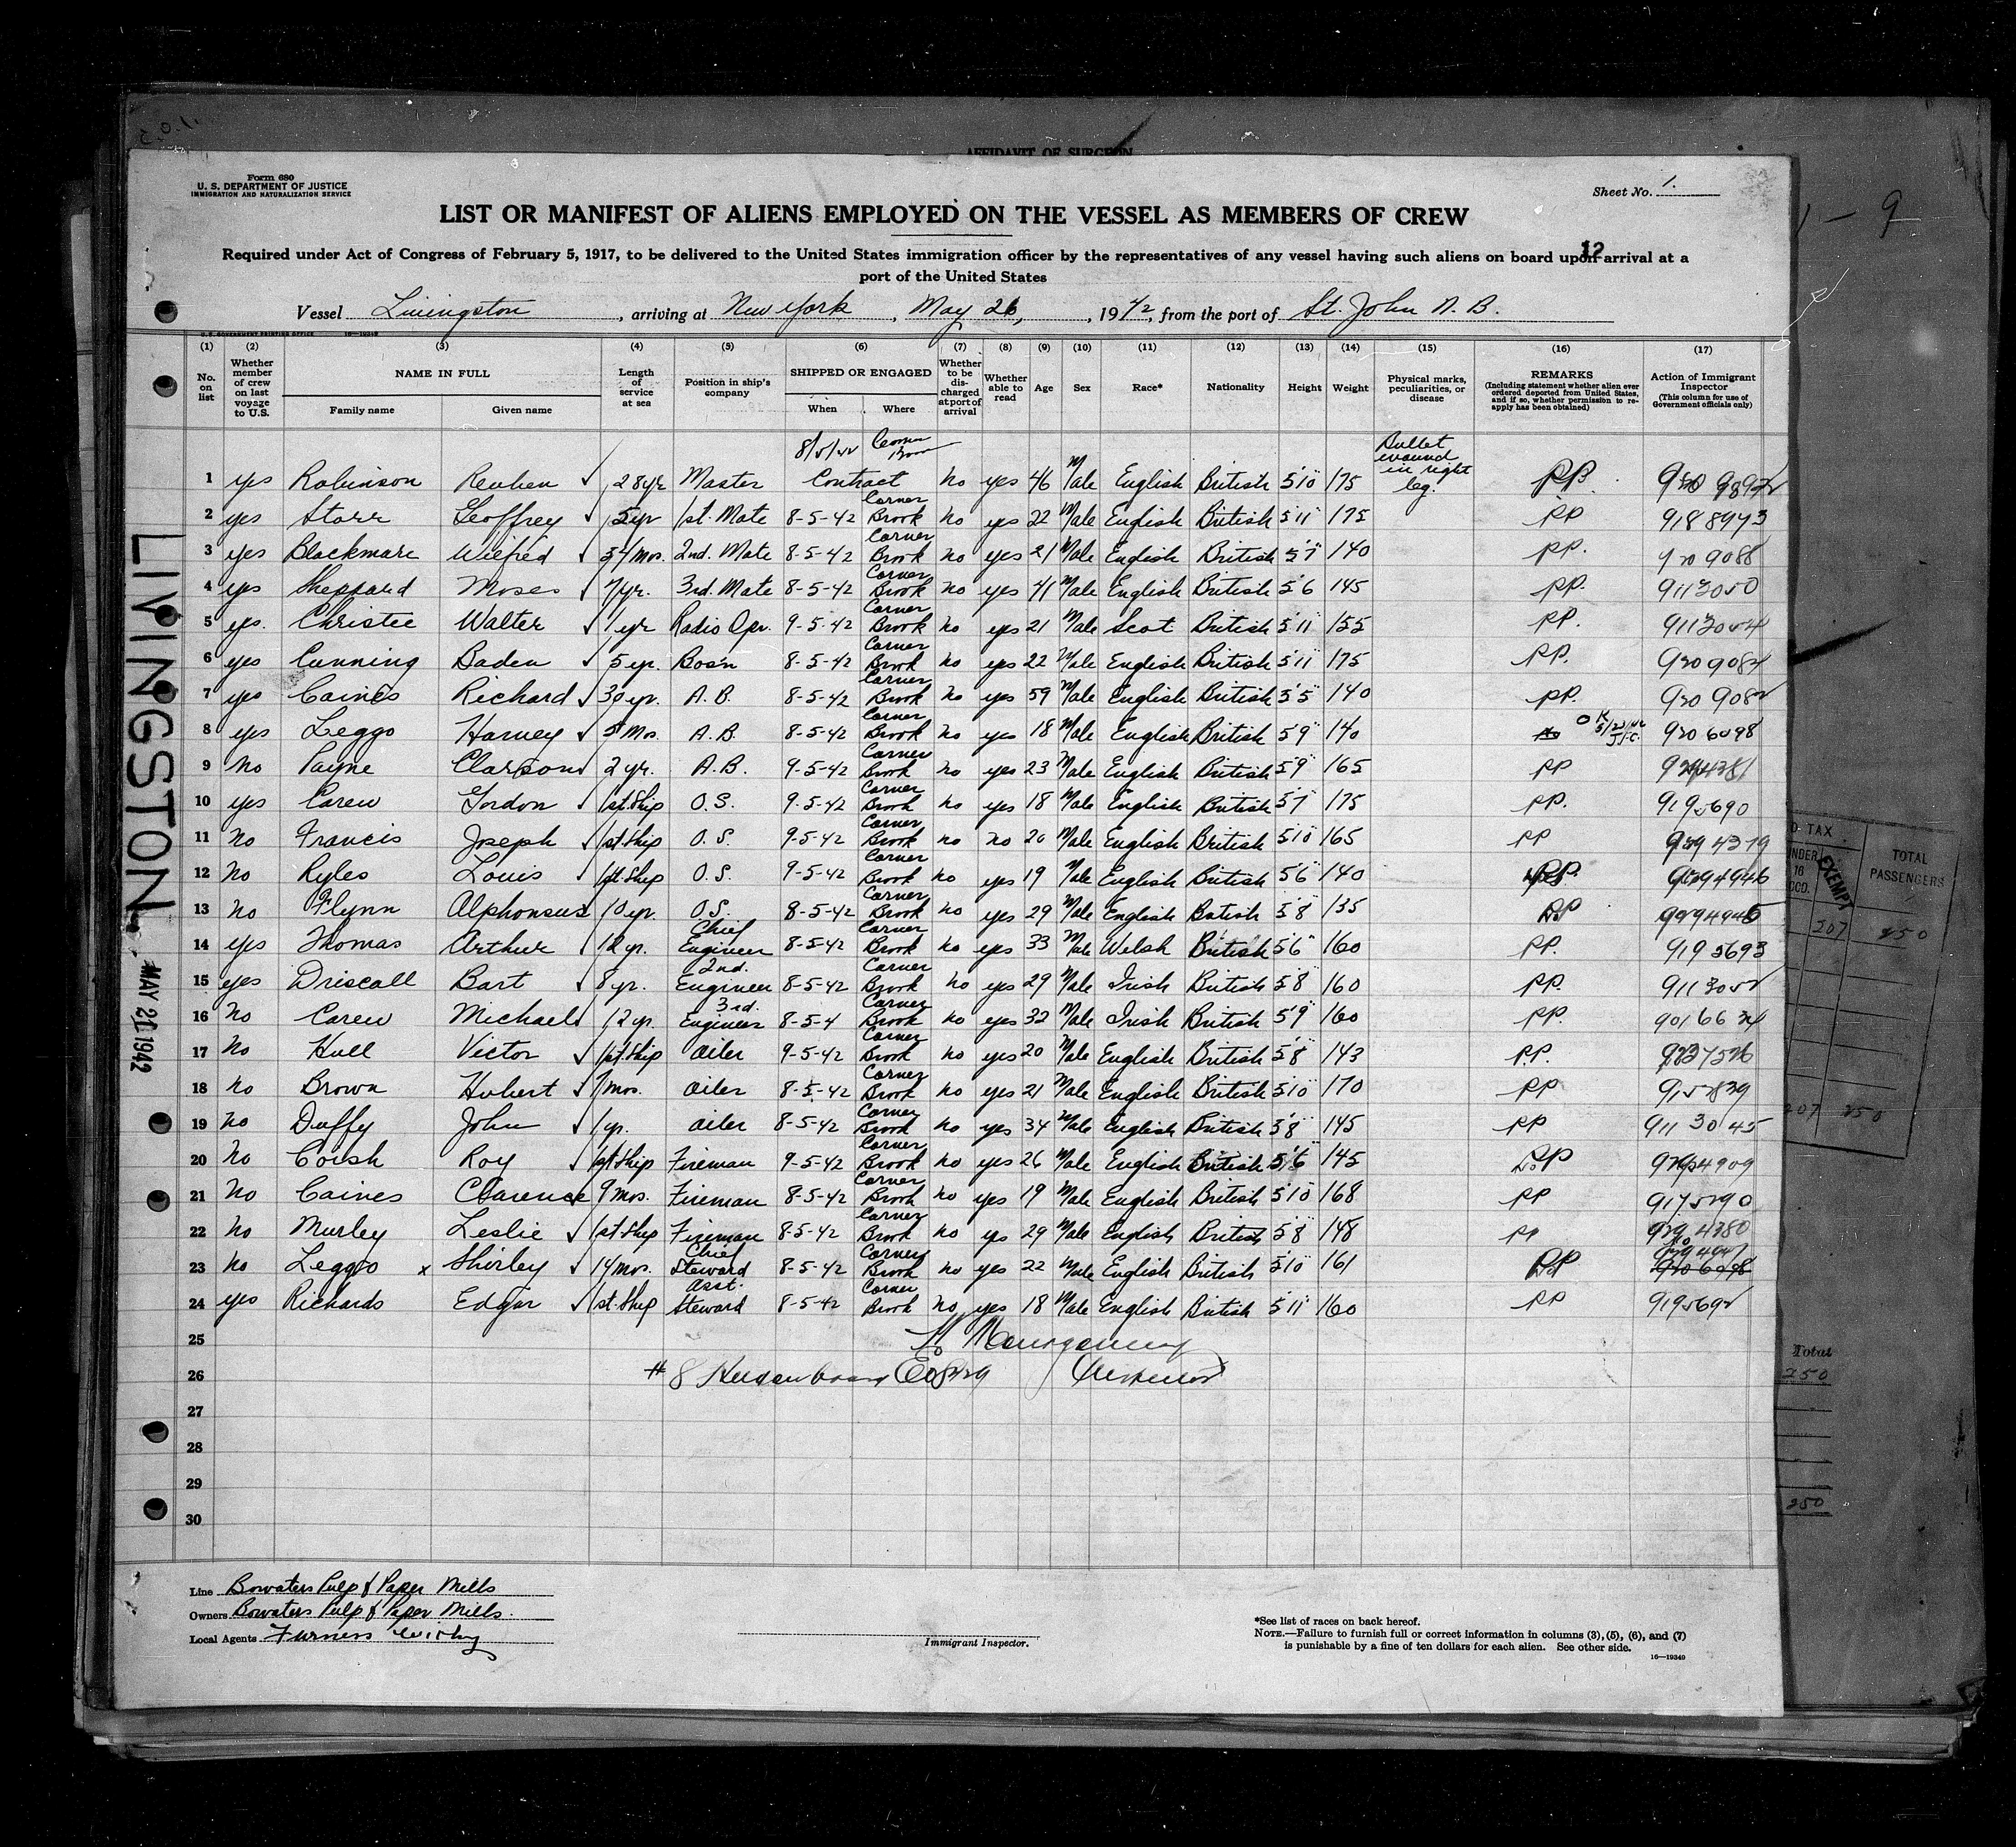 AFFIDAVIT OF SURGEON
Form 680
U. S. DEPARTMENT OF JUSTICE
IMMIGRATION AND NATURALIZATION SERVICE
Sheet No. 1.
LIST OR MANIFEST OF ALIENS EMPLOYED ON THE VESSEL AS MEMBERS OF CREW
12
Required under Act of Congress of February 5, 1917, to be delivered to the United States immigration officer by the representatives of any vessel having such aliens on board upon arrival at a
port of the United States
Vessel Livingston, arriving at New York, May 26, 1942, from the port of St. John N. B.
U. S. GOVERNMENT PRINTING OFFICE 16—19349
(1) (2) (3) (4) (5) (6) (7) (8) (9) (10) (11) (12) (13) (14) (15) (16) (17)
No. on list
Whether member of crew on last voyage to U.S.
NAME IN FULL
Family name Given name
Length of service at sea
Position in ship's company
SHIPPED OR ENGAGED
When Where
Whether to be discharged at port of arrival
Whether able to read
Age
Sex
Race*
Nationality
Height
Weight
Physical marks, peculiarities, or disease
REMARKS
(Including statement whether alien ever ordered deported from United States, and if so, whether permission to reapply has been obtained)
Action of Immigrant Inspector
(This column for use of Government officials only)
1 yes Robinson Reuben 28yr Master 8/5/42 Corner Brook Contract No yes 46 Male English British 5'10" 175 Bullet wound in right leg. PP
2 yes Starr Geoffrey 5yr 1st. Mate 8-5-42 Corner Brook No yes 22 Male English British 5'11" 175 PP 9188973
3 yes Blackmare Wilfred 54 Mos. 2nd. Mate 8-5-42 Corner Brook No yes 21 Male English British 5'7" 140 PP. 920 9088
4 yes Sheppard Moses 7yr. 3rd. Mate 8-5-42 Corner Brook No yes 41 Male English British 5'6 145 PP. 9113050
5 yes. Christie Walter 1 yr Radio Opr. 9-5-42 Corner Brook No yes 21 Male Scot British 5'11" 155 PP.
6 yes Cunning Baden 5 yr. Bosn 8-5-42 Corner Brook no yes 22 Male English British 5'11" 175 PP.
7 yes Caines Richard 30 yr. A.B. 8-5-42 Corner Brook No yes 59 Male English British 5'5" 140 PP. 920 9082
8 yes Leggo Harvey 5 Mos. A.B. 8-5-42 Corner Brook No yes 18 Male English British 5'9" 140 OK 920 6098
9 No Payne Clarkson 2 yr. A.B. 9-5-42 Corner Brook no yes 23 Male English British 5'9" 165 PP
10 yes Carew Gordon 1st. Ship O.S. 9-5-42 Corner Brook no yes 18 Male English British 5'7" 175 PP. 9195690
11 No Francis Joseph 1st. Ship O.S. 9-5-42 Corner Brook no no 20 Male English British 5'10" 165 PP
12 No Ryles Louis 1st. Ship O.S. 9-5-42 Corner Brook no yes 19 Male English British 5'6" 140 PP.
13 no Flynn Alphonsus 10 yr. O.S. 8-5-42 Corner Brook no yes 29 Male English British 5'8" 135 PP
14 yes Thomas Arthur 12 yr. Chief Engineer 8-5-42 Corner Brook no yes 33 Male Welsh British 5'6" 160 PP. 9195693
15 yes Driscall Bart 8 yr. 2nd. Engineer 8-5-42 Corner Brook no yes 29 Male Irish British 5'8" 160 PP. 9113052
16 No Carew Michael 12 yr. 3rd. Engineer 8-5-4 Corner Brook no yes 32 Male Irish British 5'9" 160 PP.
17 No Hull Victor 1st. Ship Oiler 9-5-42 Corner Brook no yes 20 Male English British 5'8" 143 P.P.
18 no Brown Hubert 7 mos. Oiler 8-5-42 Corner Brook no yes 21 Male English British 5'10" 170 PP
19 no Duffy John 1 yr. Oiler 8-5-42 Corner Brook no yes 34 Male English British 5'8" 145 PP 911 3045
20 no Corsh Roy 1st Ship Fireman 9-5-42 Corner Brook no yes 26 Male English British 5'6" 145 PP
21 No Caines Clarence 9 mos. Fireman 8-5-42 Corner Brook no yes 19 Male English British 5'10" 168 PP 9175290
22 No Murley Leslie 1st. Ship Fireman 8-5-42 Corner Brook no yes 29 Male English British 5'8" 148 PP
23 no Leggo x Shirley 14 mos. Chief Steward 8-5-42 Corner Brook no yes 22 Male English British 5'10" 161 PP
24 yes Richards Edgar 1st. Ship Asst. Steward 8-5-42 Corner Brook no yes 18 Male English British 5'11" 160 PP 9195692
25
26 #8
27
28
29
30
LIVINGSTON
MAY 21 1942
Line Bowaters Pulp & Paper Mills
Owners Bowaters Pulp & Paper Mills.
Local Agents Furness Withy
Immigrant Inspector.
*See list of races on back hereof.
NOTE.—Failure to furnish full or correct information in columns (3), (5), (6), and (7)
is punishable by a fine of ten dollars for each alien. See other side.
16—19349
TAX
UNDER 16
EXEMPT
TOTAL PASSENGERS
207 250
207 250
Total
250
250